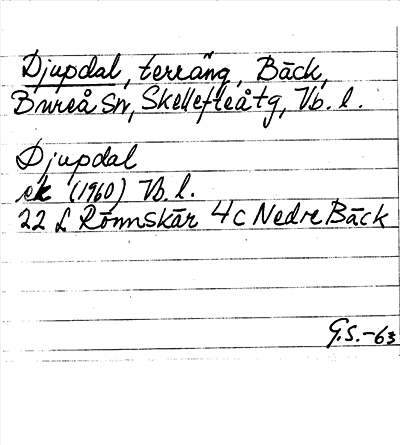 Djupdal, terräng, Bäck,
Bureå sn, Skellefteå tg, Vb. l.
Djupdal
ek (1960) Vb. l.
22 L Rönnskär 4 c Nedre Bäck
G.S.-63